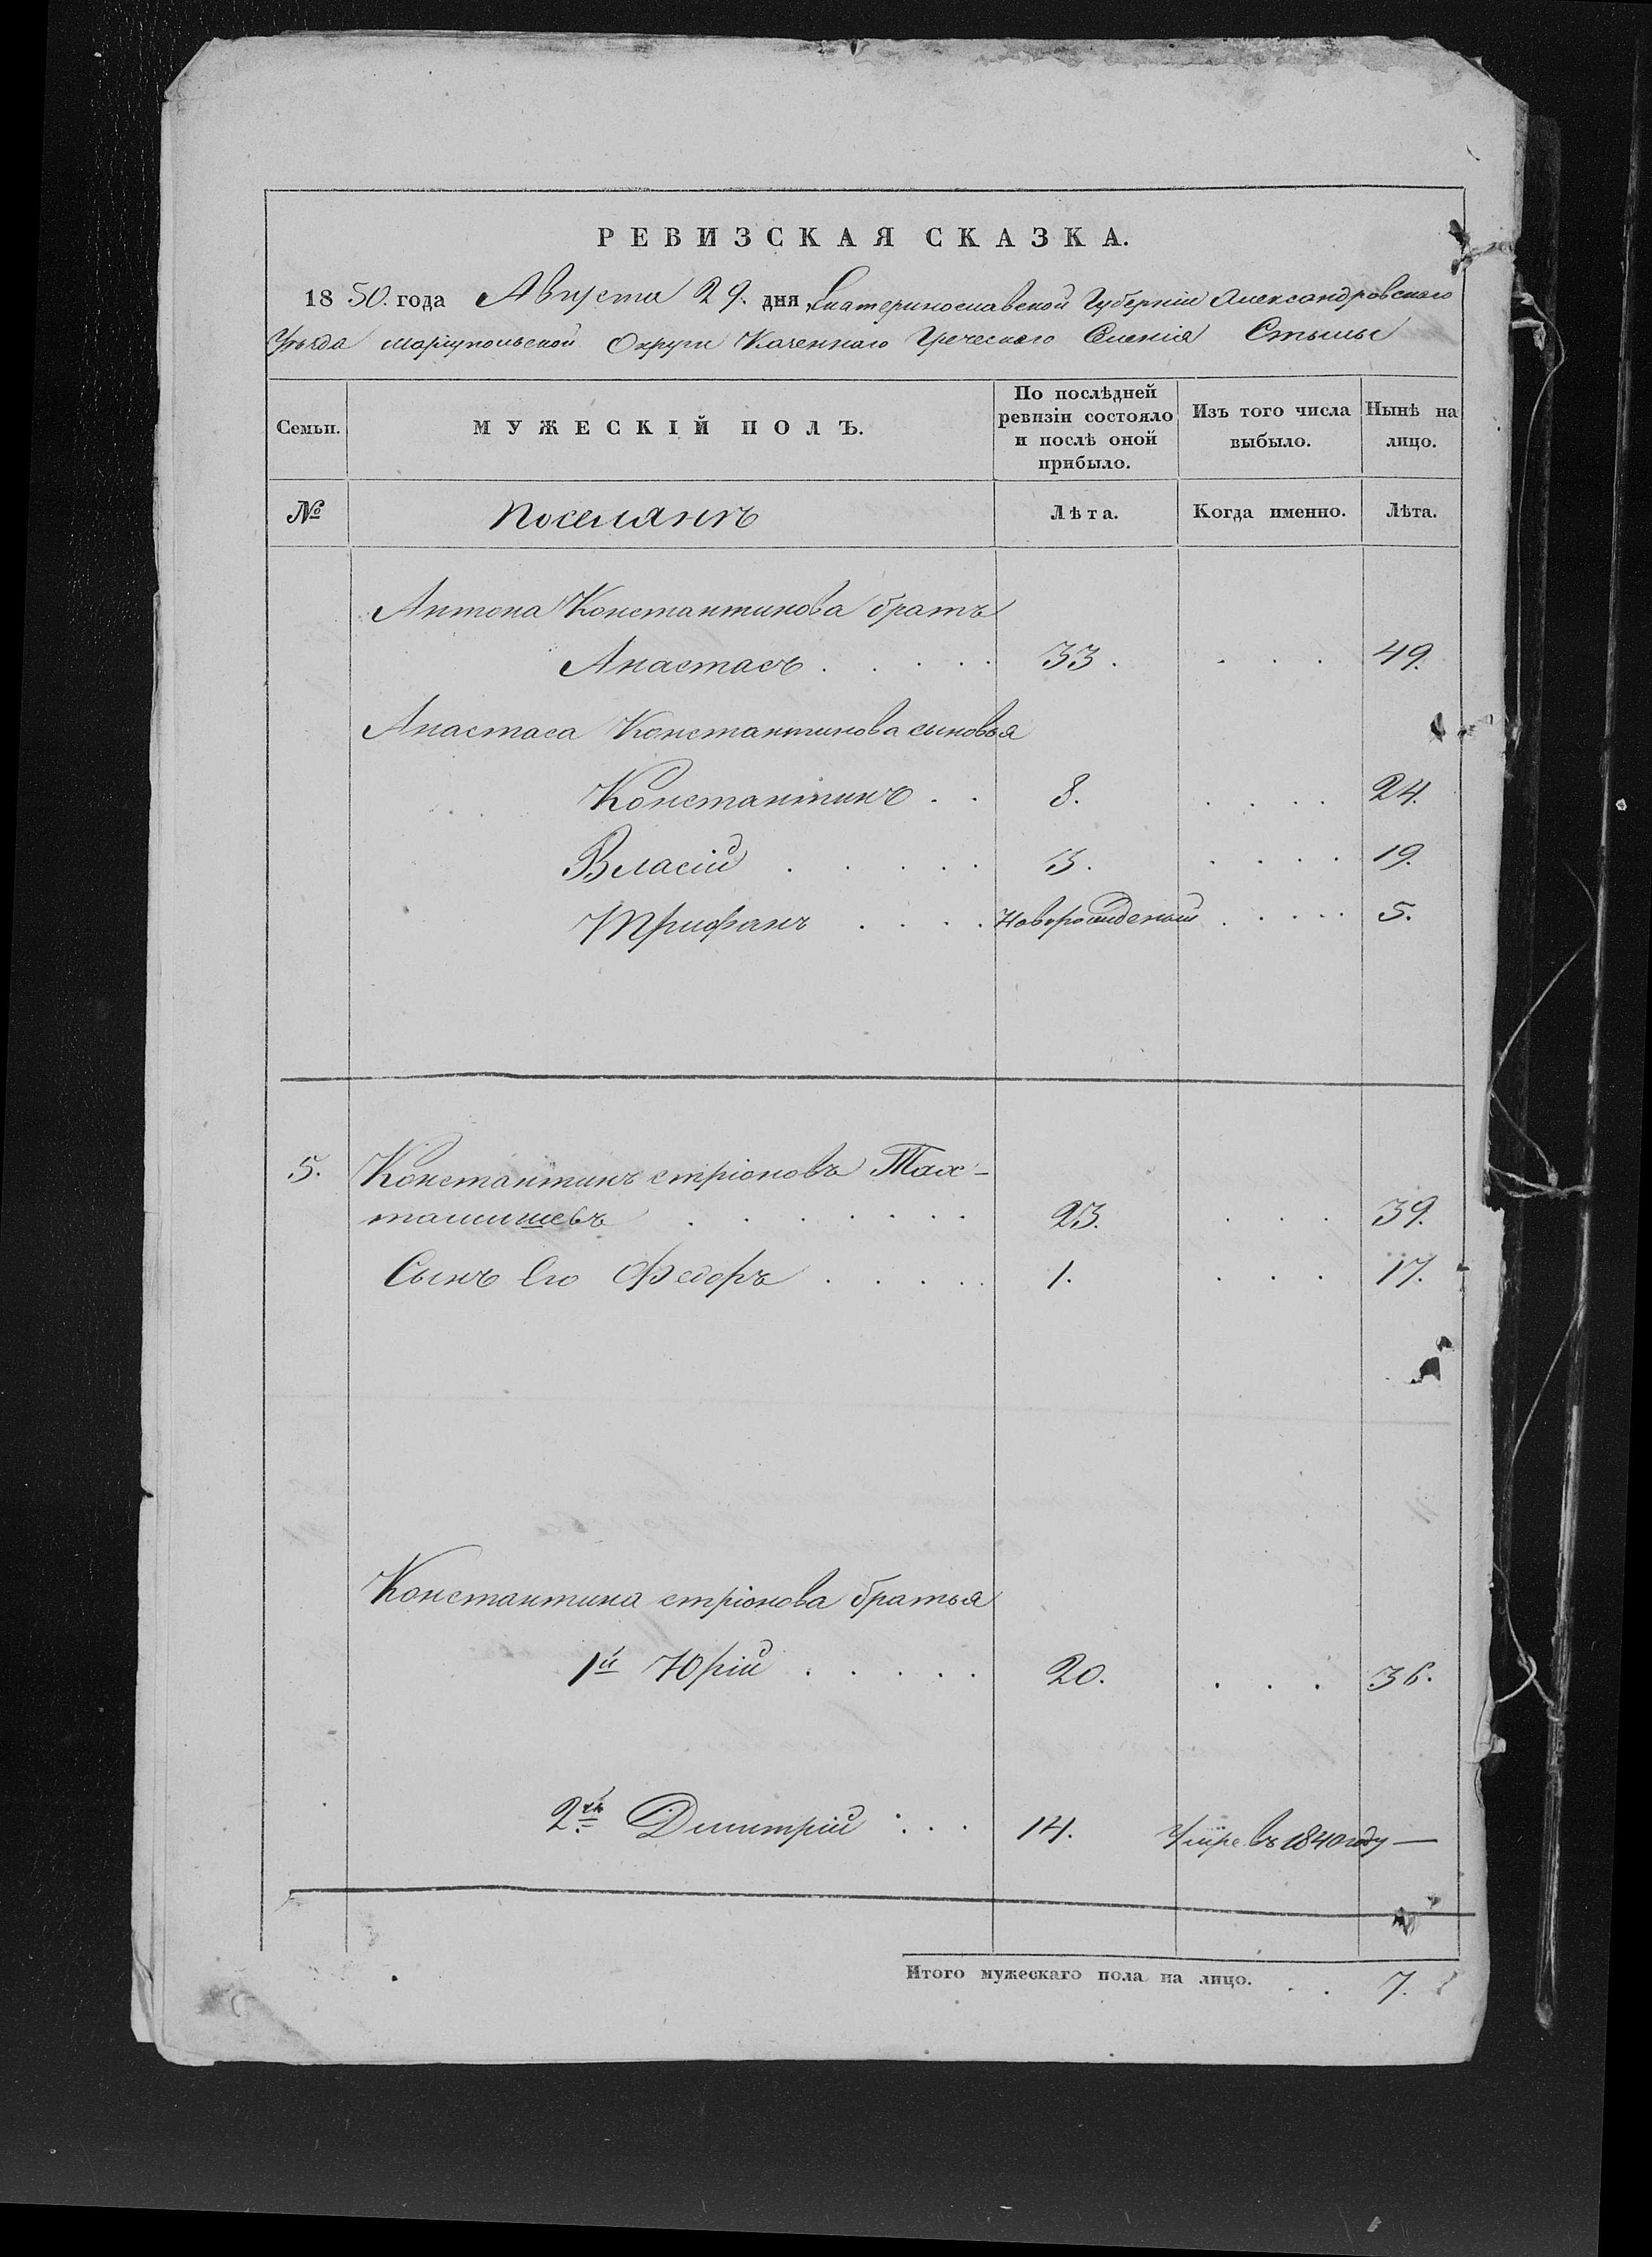 РЕВИЗСКАЯ СКАЗКА.
1850. года Августа 29. дня Екатеринославской Губерніи Александровскаго
Уѣзда маріупольской Округи Казеннаго Греческаго Селенія Стылы
Семьи. МУЖЕСКІЙ ПОЛЪ. По послѣдней ревизіи состояло и послѣ оной прибыло. Изъ того числа выбыло. Нынѣ на лицо.
№ поселянъ Лѣта. Когда именно. Лѣта.
Антона Константинова братъ
Анастасъ . . . . 33. . . . 49.
Анастаса Константинова сыновья
Константинъ . . 8. . . . . 24.
Власій . . . . . 3. . . . . 19.
Трифанъ . . . . Новорожденый . . . . 5.
5. Константинъ стріоновъ Тах-
тамишевъ . . . . . . 23. . . . 39.
Сынъ Его Федоръ . . . . 1. . . . 17.
Константина стріонова братья
1й Юрій . . . . 20. . . . 36.
2й Димитрій . . . 14. Умре въ 1840 году —
Итого мужескаго пола на лицо. . . 7.